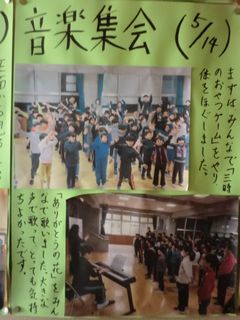 音楽集会 (5/14)
まずはみんなで「三時
のおやつゲーム」をやり
体をほぐしました。
「ありがとうの花」をみん
なで歌いました。大きな
声で歌って、とっても気持
ちよかったです。